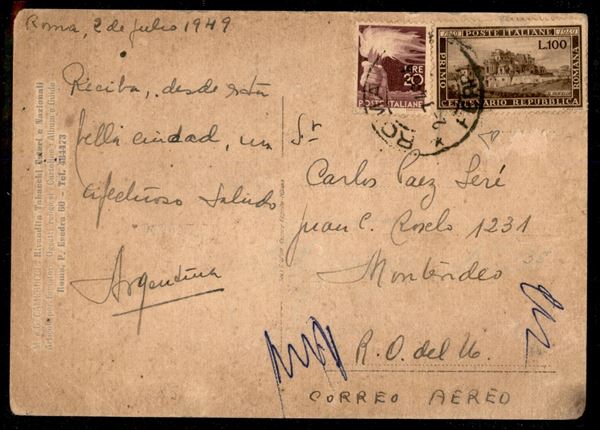 Roma, 2 de julio 1949
Reciba, desde esta
bella ciudad, un
afectuoso saludo
Argentina
LIRE
20
POSTE ITALIANE
1849 POSTE ITALIANE 1949
L.100
PRIMO
ROMANA
CENTENARIO REPUBBLICA
ROMA
Sr
Carlos Paez Seré
Juan C. Roselo 1231
Montevideo
35
R. O. del U.
CORREO AEREO
Rivendita Tabacchi Esteri e Nazionali
Roma, P. Esedra 60 - Tel. 484473